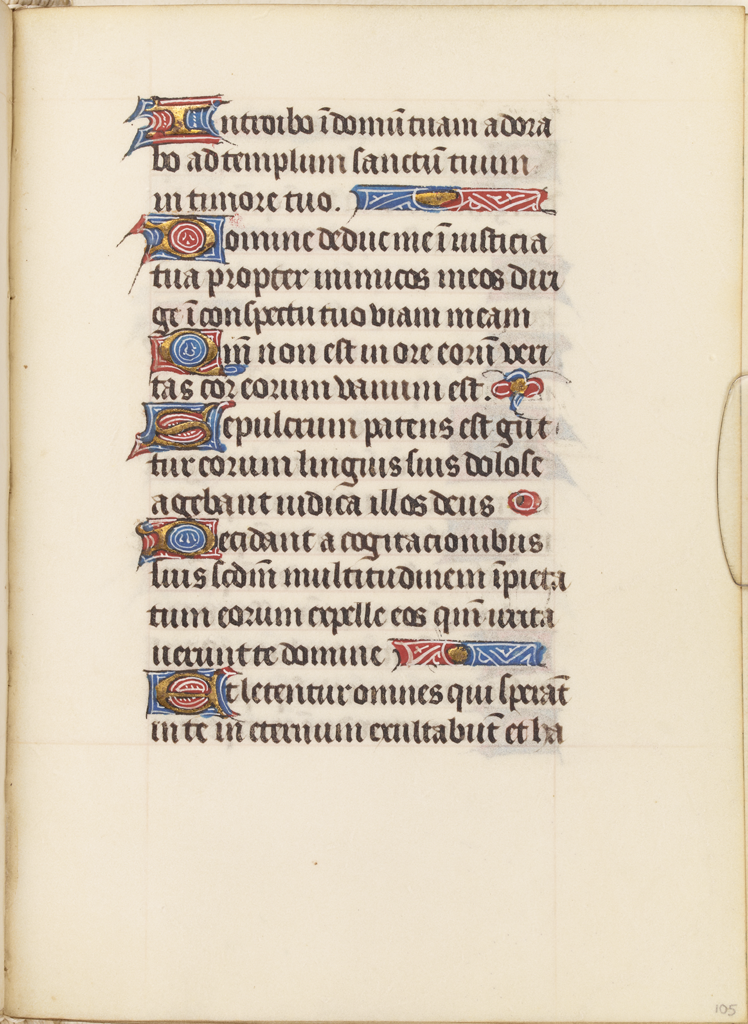 Introibo ī domū tuam adora
bo ad templum sanctū tuum
in timore tuo.
Domine deduc me ī iusticia
tua propter inimicos meos diri
ge ī conspectu tuo viam meam
Qm̄ non est in ore eorū veri
tas cor eorum vanum est.
Sepulcrum patens est gut
tur eorum linguis suis dolose
agebant iudica illos deus
Decidant a cogitacionibus
suis scdm̄ multitudinem īpieta
tum eorum expelle eos qm̄ irrita
uerunt te domine
Et letentur omnes qui sperāt
in te in eternum exultabūt et ha
105